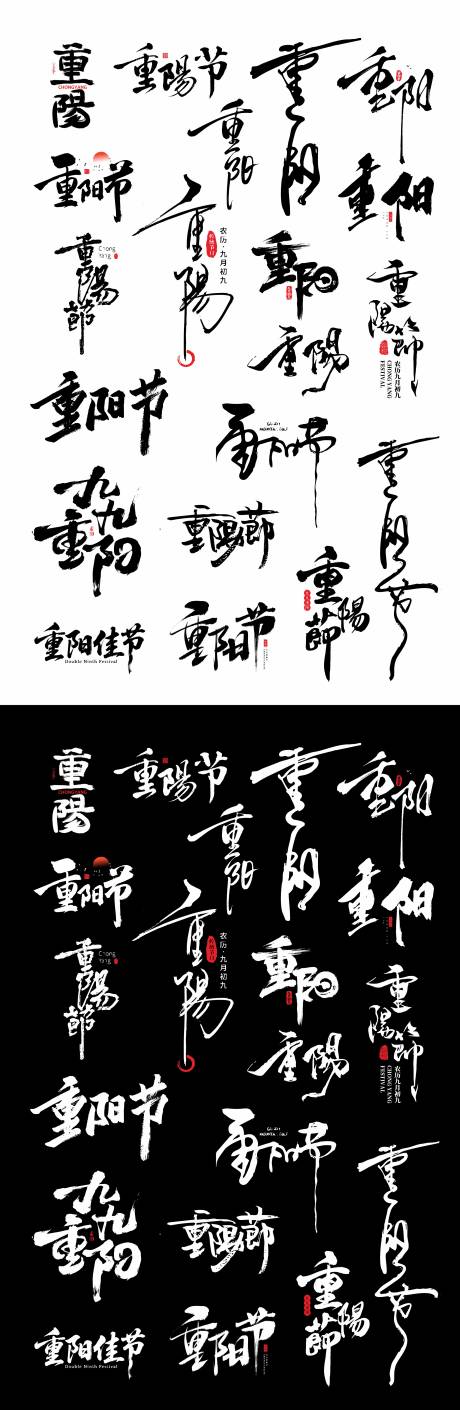 重陽
CHONGYANG
重陽节
重阳
重阳
重阳
重阳节
重阳
重陽
农历·九月初九
重陽節
Chong
Yang
重阳
重陽節
农历九月初九
CHONG YANG
FESTIVAL
重陽
重阳节
重阳节
重阳节
九九
重阳
重陽節
重陽節
重阳佳节
Double Ninth Festival
重阳节
重陽
CHONGYANG
重陽节
重阳
重阳
重阳
重阳节
重阳
重陽
农历·九月初九
重陽節
Chong
Yang
重阳
重陽節
农历九月初九
CHONG YANG
FESTIVAL
重陽
重阳节
重阳节
重阳节
九九
重阳
重陽節
重陽節
重阳佳节
Double Ninth Festival
重阳节